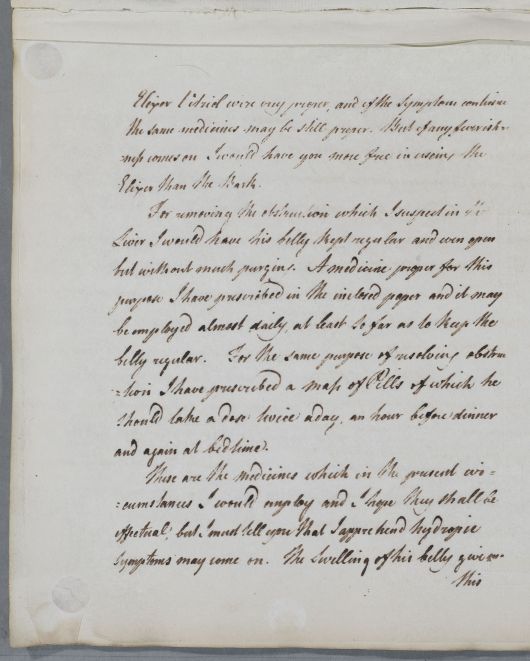 Elixer Vitriol were very proper, and if the symptoms continue
the same medicines may be still proper. But if any feverish-
ness comes on I would have you more free in useing the
Elixer than the Bark.
For removing the obstruction which I suspect in his
Liver I would have his belly kept regular and even open
but without much purging. A medicine proper for this
purpose I have prescribed in the inclosed paper and it may
be employed almost daily, at least so far as to keep the
belly regular. For the same purpose of resolving obstruc
-tion I have prescribed a mass of Pills of which he
should take a dose twice a day, an hour before dinner
and again at bedtime.
These are the medicines which in the present cir=
=cumstances I would employ and I hope they shall be
effectual; but I must tell you that I apprehend hydropic
symptoms may come on. The swelling of his belly gives
this